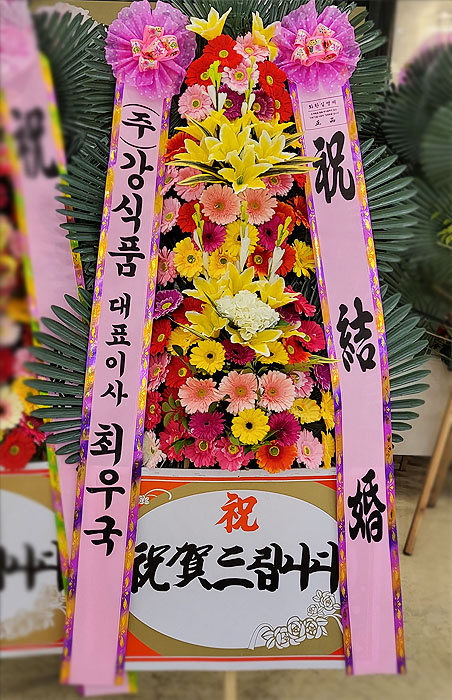 (주)강식품 대표이사 최우국
祝 結 婚
祝
祝賀드립니다